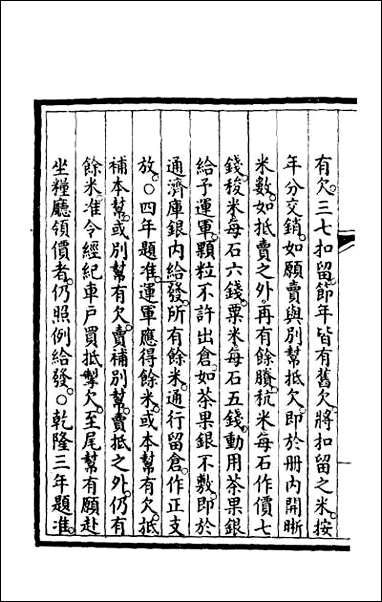 有欠。三七扣留。節年皆有舊欠。將扣留之米。按
年分交銷。如願賣與別幫抵欠。卽於册內開晣
米數。如抵賣之外。再有餘賸。秔米每石作價七
錢。稄米每石六錢。粟米每石五錢。動用茶果銀
給予運軍。顆粒不許出倉。如茶果銀不敷。卽於
通濟庫銀內給發。所有餘米。通行留倉。作正支
放。○四年題准。運軍應得餘米。或本幫有欠。抵
補本幫。或別幫有欠。賣補別幫。賣抵之外。仍有
餘米。准令經紀車戶買抵掣欠。至尾幫有願赴
坐糧廳領價者。仍照例給發。○乾隆三年題准。